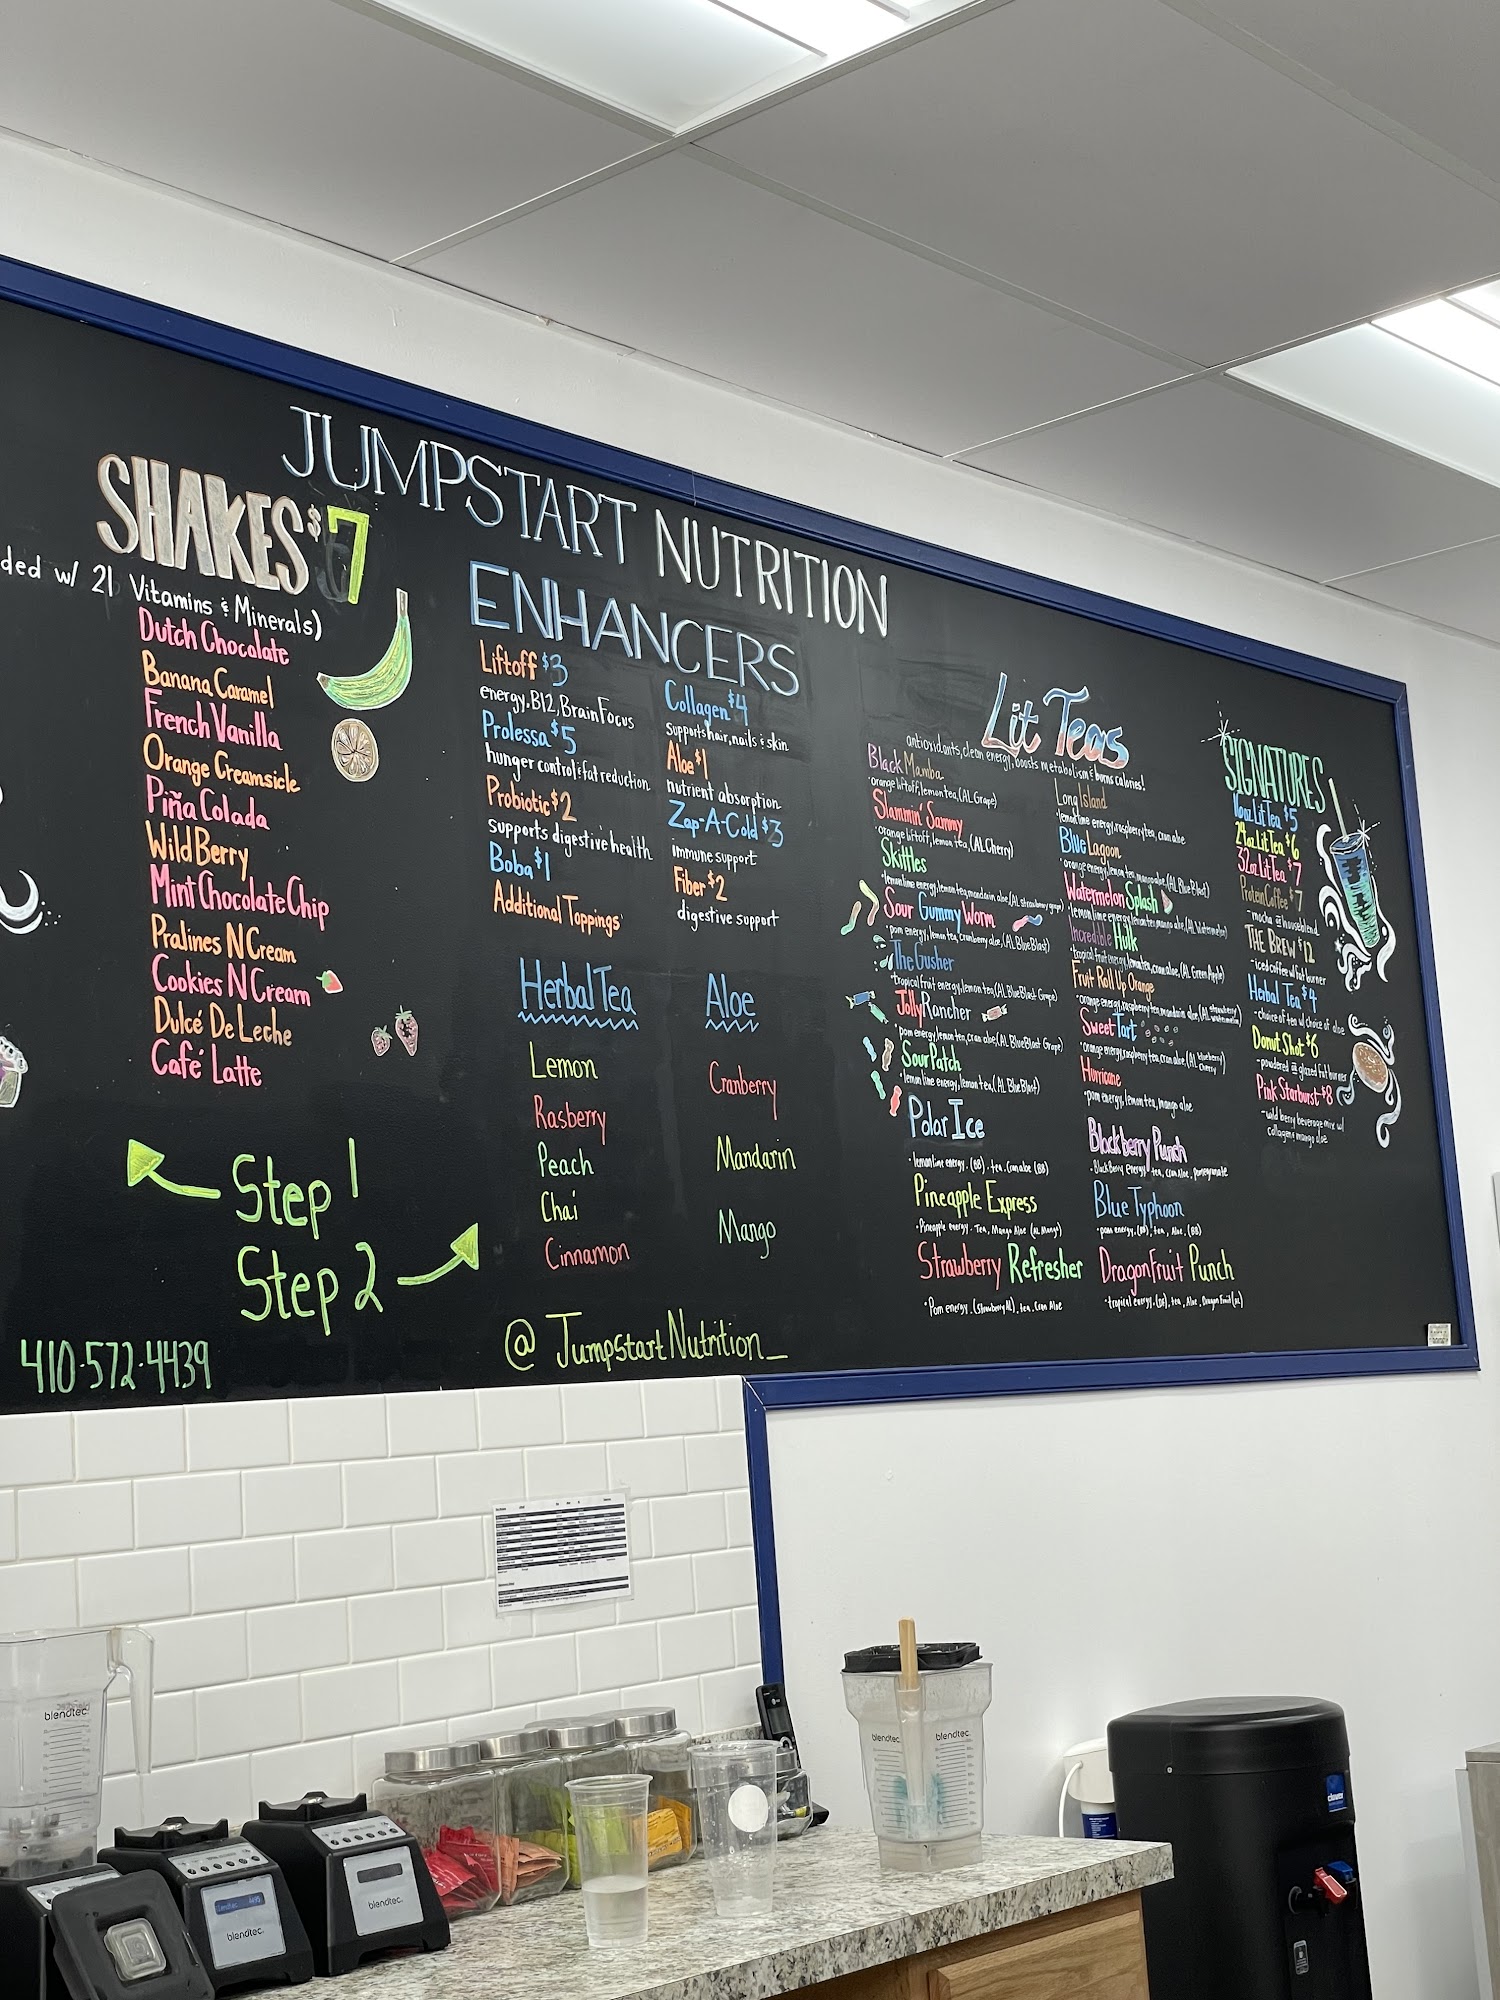 JUMPSTART NUTRITION
SHAKES $7
ded w/ 21 Vitamins & Minerals)
Dutch Chocolate
Banana Caramel
French Vanilla
Orange Creamsicle
Piña Colada
Wild Berry
Mint Chocolate Chip
Pralines N Cream
Cookies N Cream
Dulcé De Leche
Café Latte
Step 1
Step 2
410-572-4439
ENHANCERS
Liftoff $3
energy, B12, Brain Focus
Prolessa $5
hunger control & fat reduction
Probiotic $2
supports digestive health
Boba $1
Additional Toppings
Collagen $4
supports hair, nails & skin
Aloe $1
nutrient absorption
Zap-A-Cold $3
immune support
Fiber $2
digestive support
Herbal Tea
Lemon
Rasberry
Peach
Chai
Cinnamon
Aloe
Cranberry
Mandarin
Mango
@ JumpstartNutrition_
Lit Teas
antioxidants, clean energy, boosts metabolism & burns calories!
Black Mamba
•orange liftoff, lemon tea, (AL Grape)
Slammin' Sammy
•orange liftoff, lemon tea, (AL Cherry)
Skittles
•lemon lime energy, lemon tea, mandarin aloe, (AL strawberry grape)
Sour Gummy Worm
•pom energy, lemon tea, cranberry aloe, (AL Blue Blast)
The Gusher
•tropical fruit energy, lemon tea, (AL Blue Blast Grape)
Jolly Rancher
•pom energy, lemon tea, cran aloe, (AL Blue Blast Grape)
Sour Patch
•lemon lime energy, lemon tea, (AL Blue Blast)
Polar Ice
•lemon lime energy. (BB). tea. Cran aloe (BB)
Pineapple Express
•Pineapple energy. Tea, Mango Aloe (AL Mango)
Strawberry Refresher
•Pom energy. (Strawberry AL). tea. Cran Aloe
Long Island
•lemon lime energy, raspberry tea, cran aloe
Blue Lagoon
•orange energy, lemon tea, mango aloe, (AL Blue Blast)
Watermelon Splash
•lemon lime energy, lemon tea, mango aloe, (AL Watermelon)
Incredible Hulk
•tropical fruit energy, lemon tea, cran aloe, (AL Green Apple)
Fruit Roll Up Orange
•orange energy, raspberry tea, mandarin aloe, (AL strawberry watermelon)
Sweet Tart
•orange energy, raspberry tea, cran aloe, (AL blueberry cherry)
Hurricane
•pom energy, lemon tea, mango aloe
Blackberry Punch
•Blackberry energy. tea, Cran Aloe, pomegranate
Blue Typhoon
•pom energy. (BB), tea, Aloe, (BB)
DragonFruit Punch
•tropical energy. tea, Aloe, Dragon Fruit
SIGNATURES
16oz Lit Tea $5
24oz Lit Tea $6
32oz Lit Tea $7
Protein Coffee $7
-mocha or house blend
THE BREW $12
-iced coffee w/ fat burner
Herbal Tea $4
-choice of tea w/ choice of aloe
Donut Shot $6
-powdered or glazed fat burner
Pink Starburst $8
-wild berry beverage mix w/
collagen & mango aloe
blendtec.
blendtec.
blendtec.
blendtec.
blendtec.